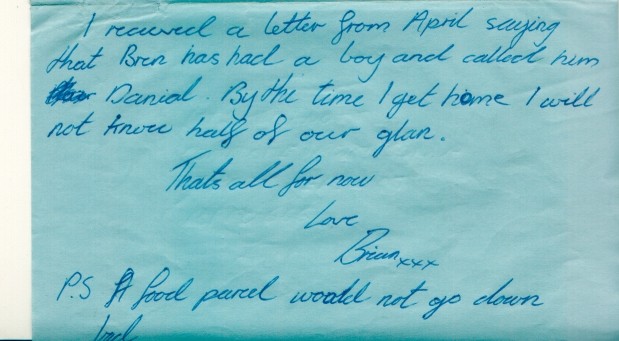 I received a letter from April saying
that Bren has had a boy and called him
Danial. By the time I get home I will
not know half of our glan.
Thats all for now
Love
Brian xxx
P.S A food parcel would not go down